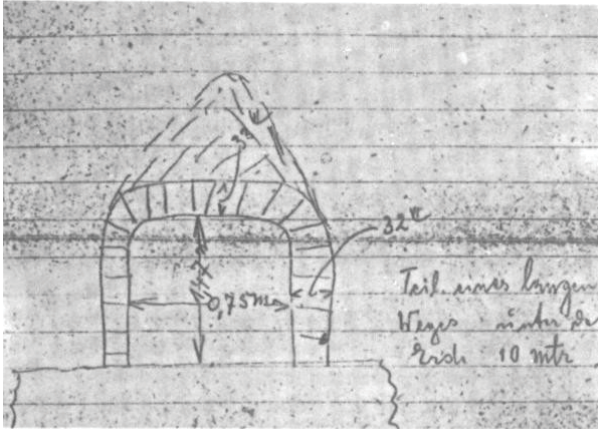 32
32
0,75m
Teil eines langen
Weges unter der
Erde 10 mtr